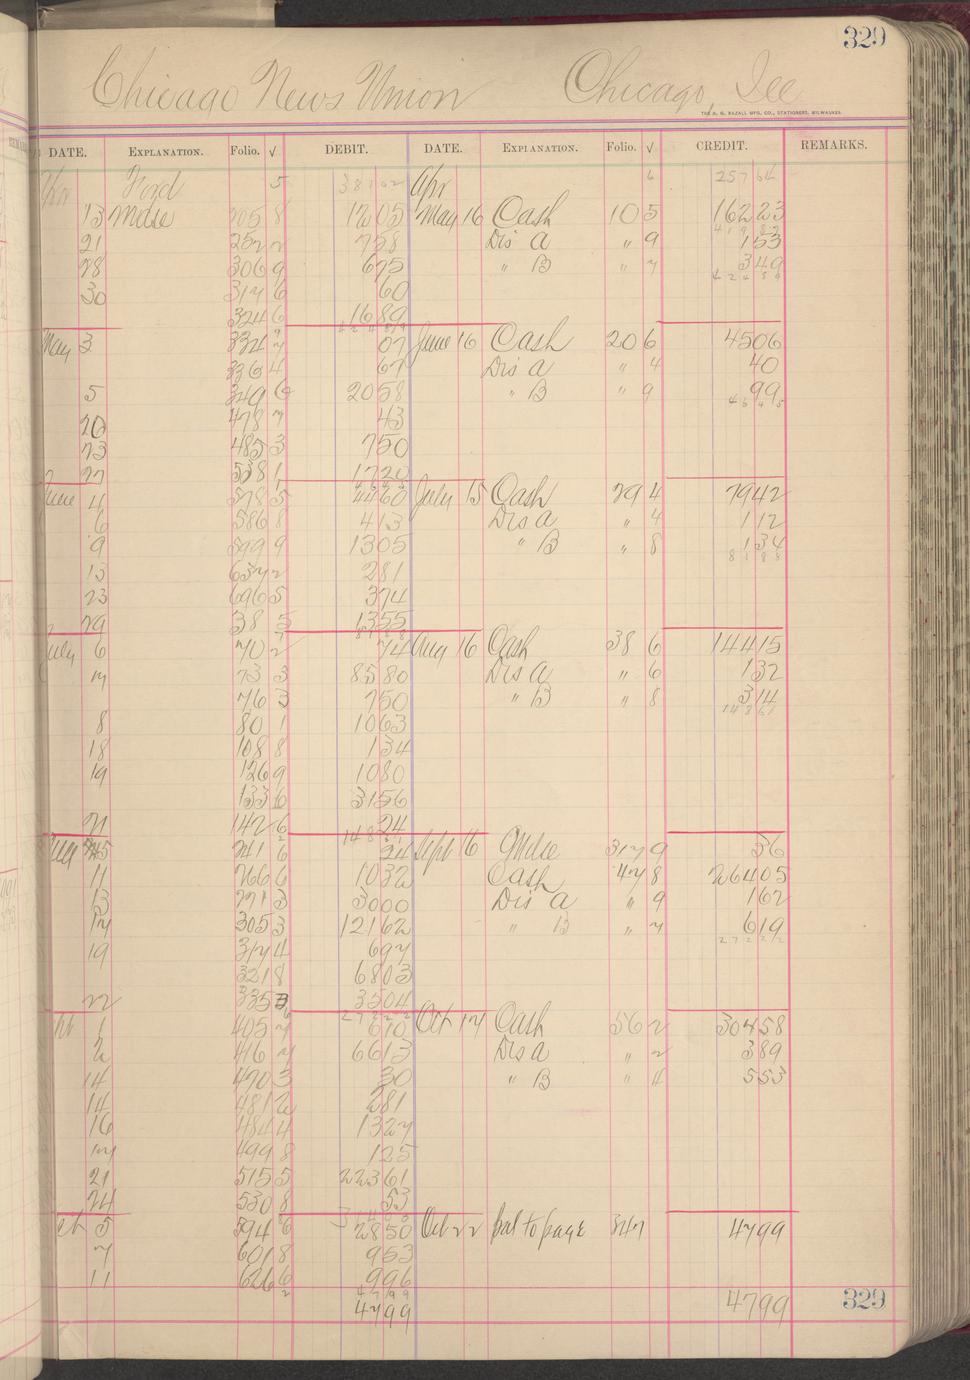 329
Chicago News Union Chicago, Ill
THE H. G. RAZALL MFG. CO., STATIONERS, MILWAUKEE.
DATE. EXPLANATION. Folio. √ DEBIT. DATE. EXPLANATION. Folio. √ CREDIT. REMARKS.
Apr Ford 5 381 02 Apr 6 257 64
13 Mdse 205 8 1205 May 16 Cash 10 5 16223
21 252 2 758 Dis A " 9 153
28 306 9 675 " B " 7 349
30 317 6 60
324 6 1689
May 3 334 7 07 June 16 Cash 20 6 4506
336 4 67 Dis A " 4 40
5 349 6 2058 " B " 9 99
20 478 7 43
23 485 3 750
27 538 1 1720
June 4 578 5 4460 July 15 Cash 29 4 7942
6 586 8 413 Dis A " 4 112
9 599 9 1305 " B " 8 134
13 637 2 281
23 696 5 374
29 38 5 1355
July 6 70 2 74 Aug 16 Cash 38 6 14415
7 73 3 8580 Dis A " 6 132
76 3 750 " B " 8 314
8 80 1 1063
18 108 8 134
19 126 9 1080
133 6 3156
21 142 6 24
Aug 5 241 6 24 Sept 16 Mdse 317 9 36
11 266 6 1032 Cash 47 8 26405
13 271 3 3000 Dis A " 9 162
17 305 3 12162 " B " 7 619
19 317 4 697
321 8 6803
22 335 3 3504
1 405 7 610 Oct 17 Cash 56 2 30458
2 416 7 6613 Dis A " 2 389
14 470 3 30 " B " 4 553
14 481 2 281
16 484 4 1327
17 499 8 125
21 515 5 22361
24 530 8 53
5 594 6 2850 Oct 22 bal to page 347 4799
7 601 8 953
11 626 6 996
4799 4799 329